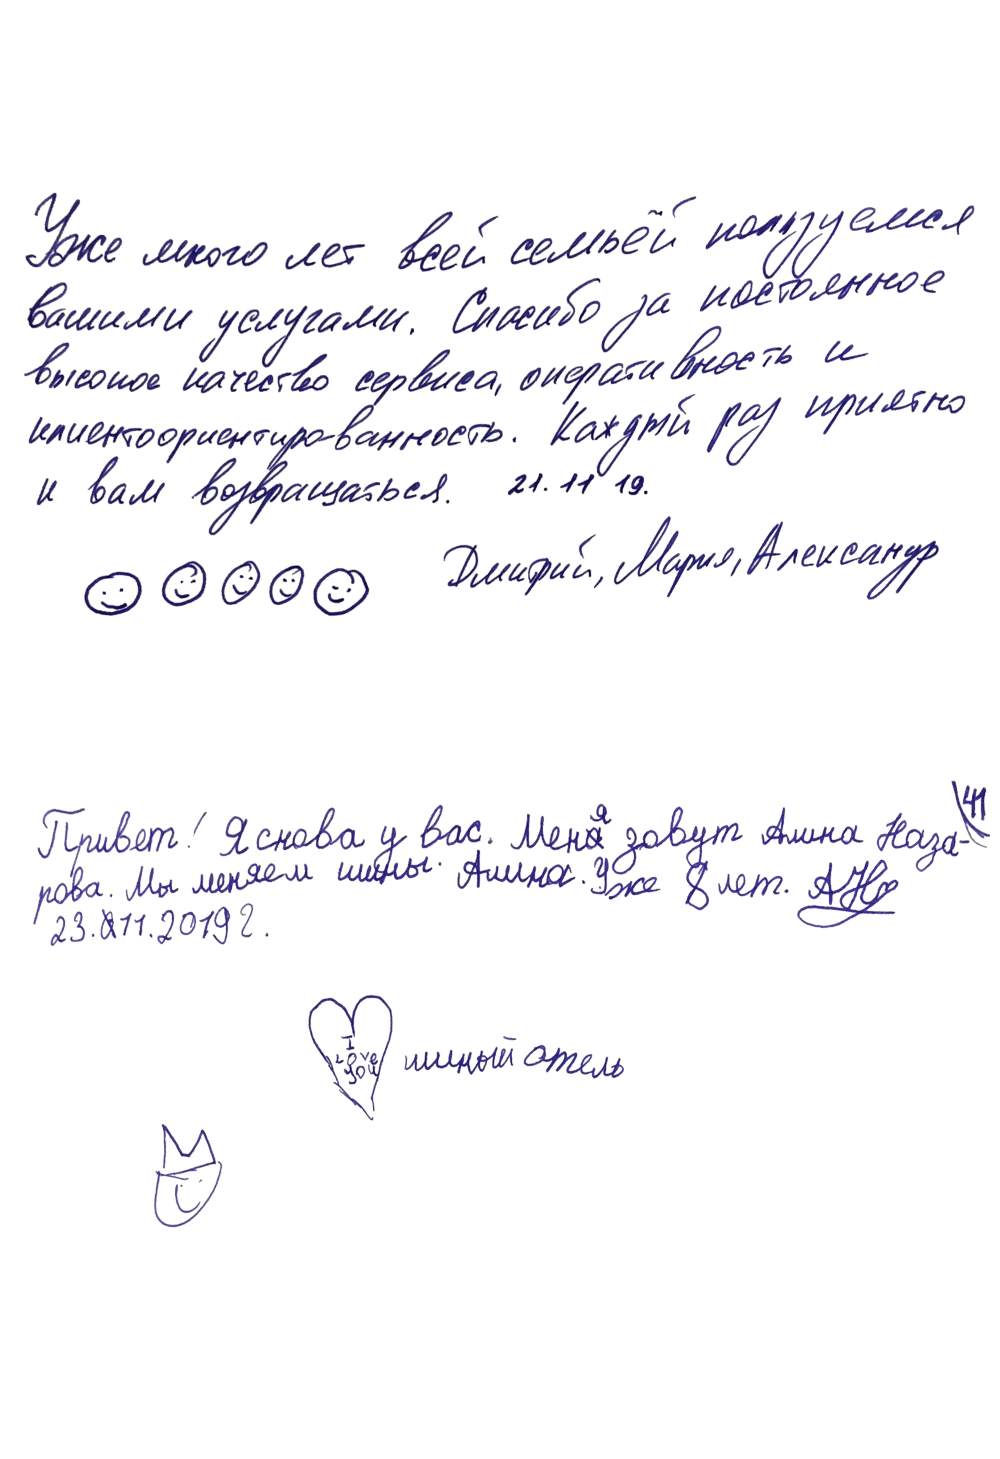 Уже много лет всей семьёй пользуемся
вашими услугами. Спасибо за постоянное
высокое качество сервиса, оперативность и
клиентоориентированность. Каждый раз приятно
к вам возвращаться. 21.11 19.
Дмитрий, Мария, Александр
41
Привет! Я снова у вас. Меня зовут Алина Наза-
рова. Мы меняем шины. Алина. Уже 8 лет.
23.11.2019г.
I
Love
you
шиный отель